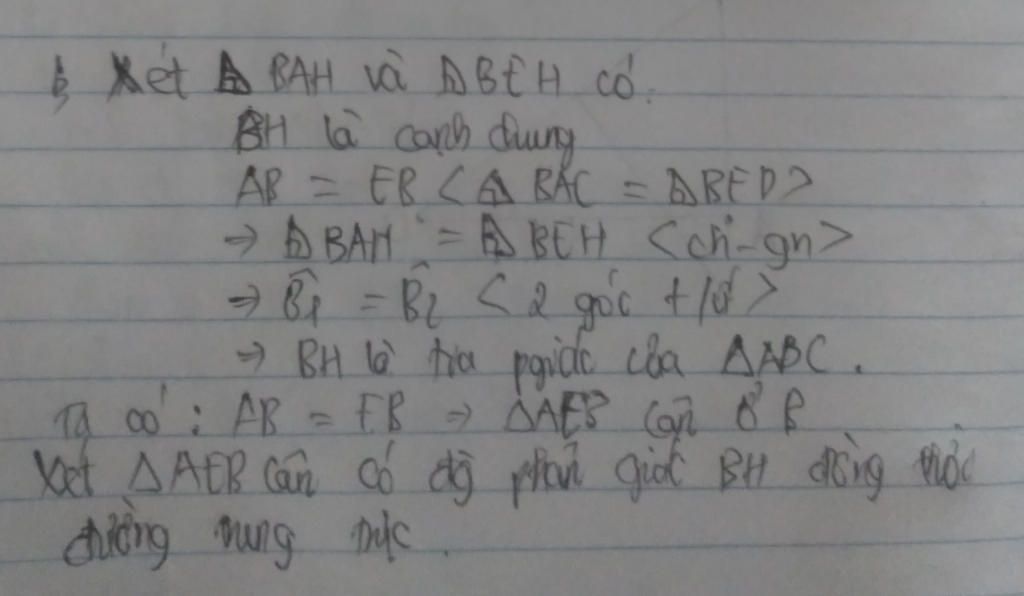 b, Xét Δ BAH và Δ BEH có:
BH là cạnh chung
AB = EB < Δ BAC = Δ BED >
⇒ Δ BAH = Δ BEH < ch - gn >
⇒ B̂1 = B̂2 < 2 góc t/ứ >
⇒ BH là tia pgiác của ΔABC.
Ta có : AB = EB ⇒ ΔAEB cân ở B
Xét ΔAEB cân có đg̀ phân giác BH đồng thời
đường trung trực.